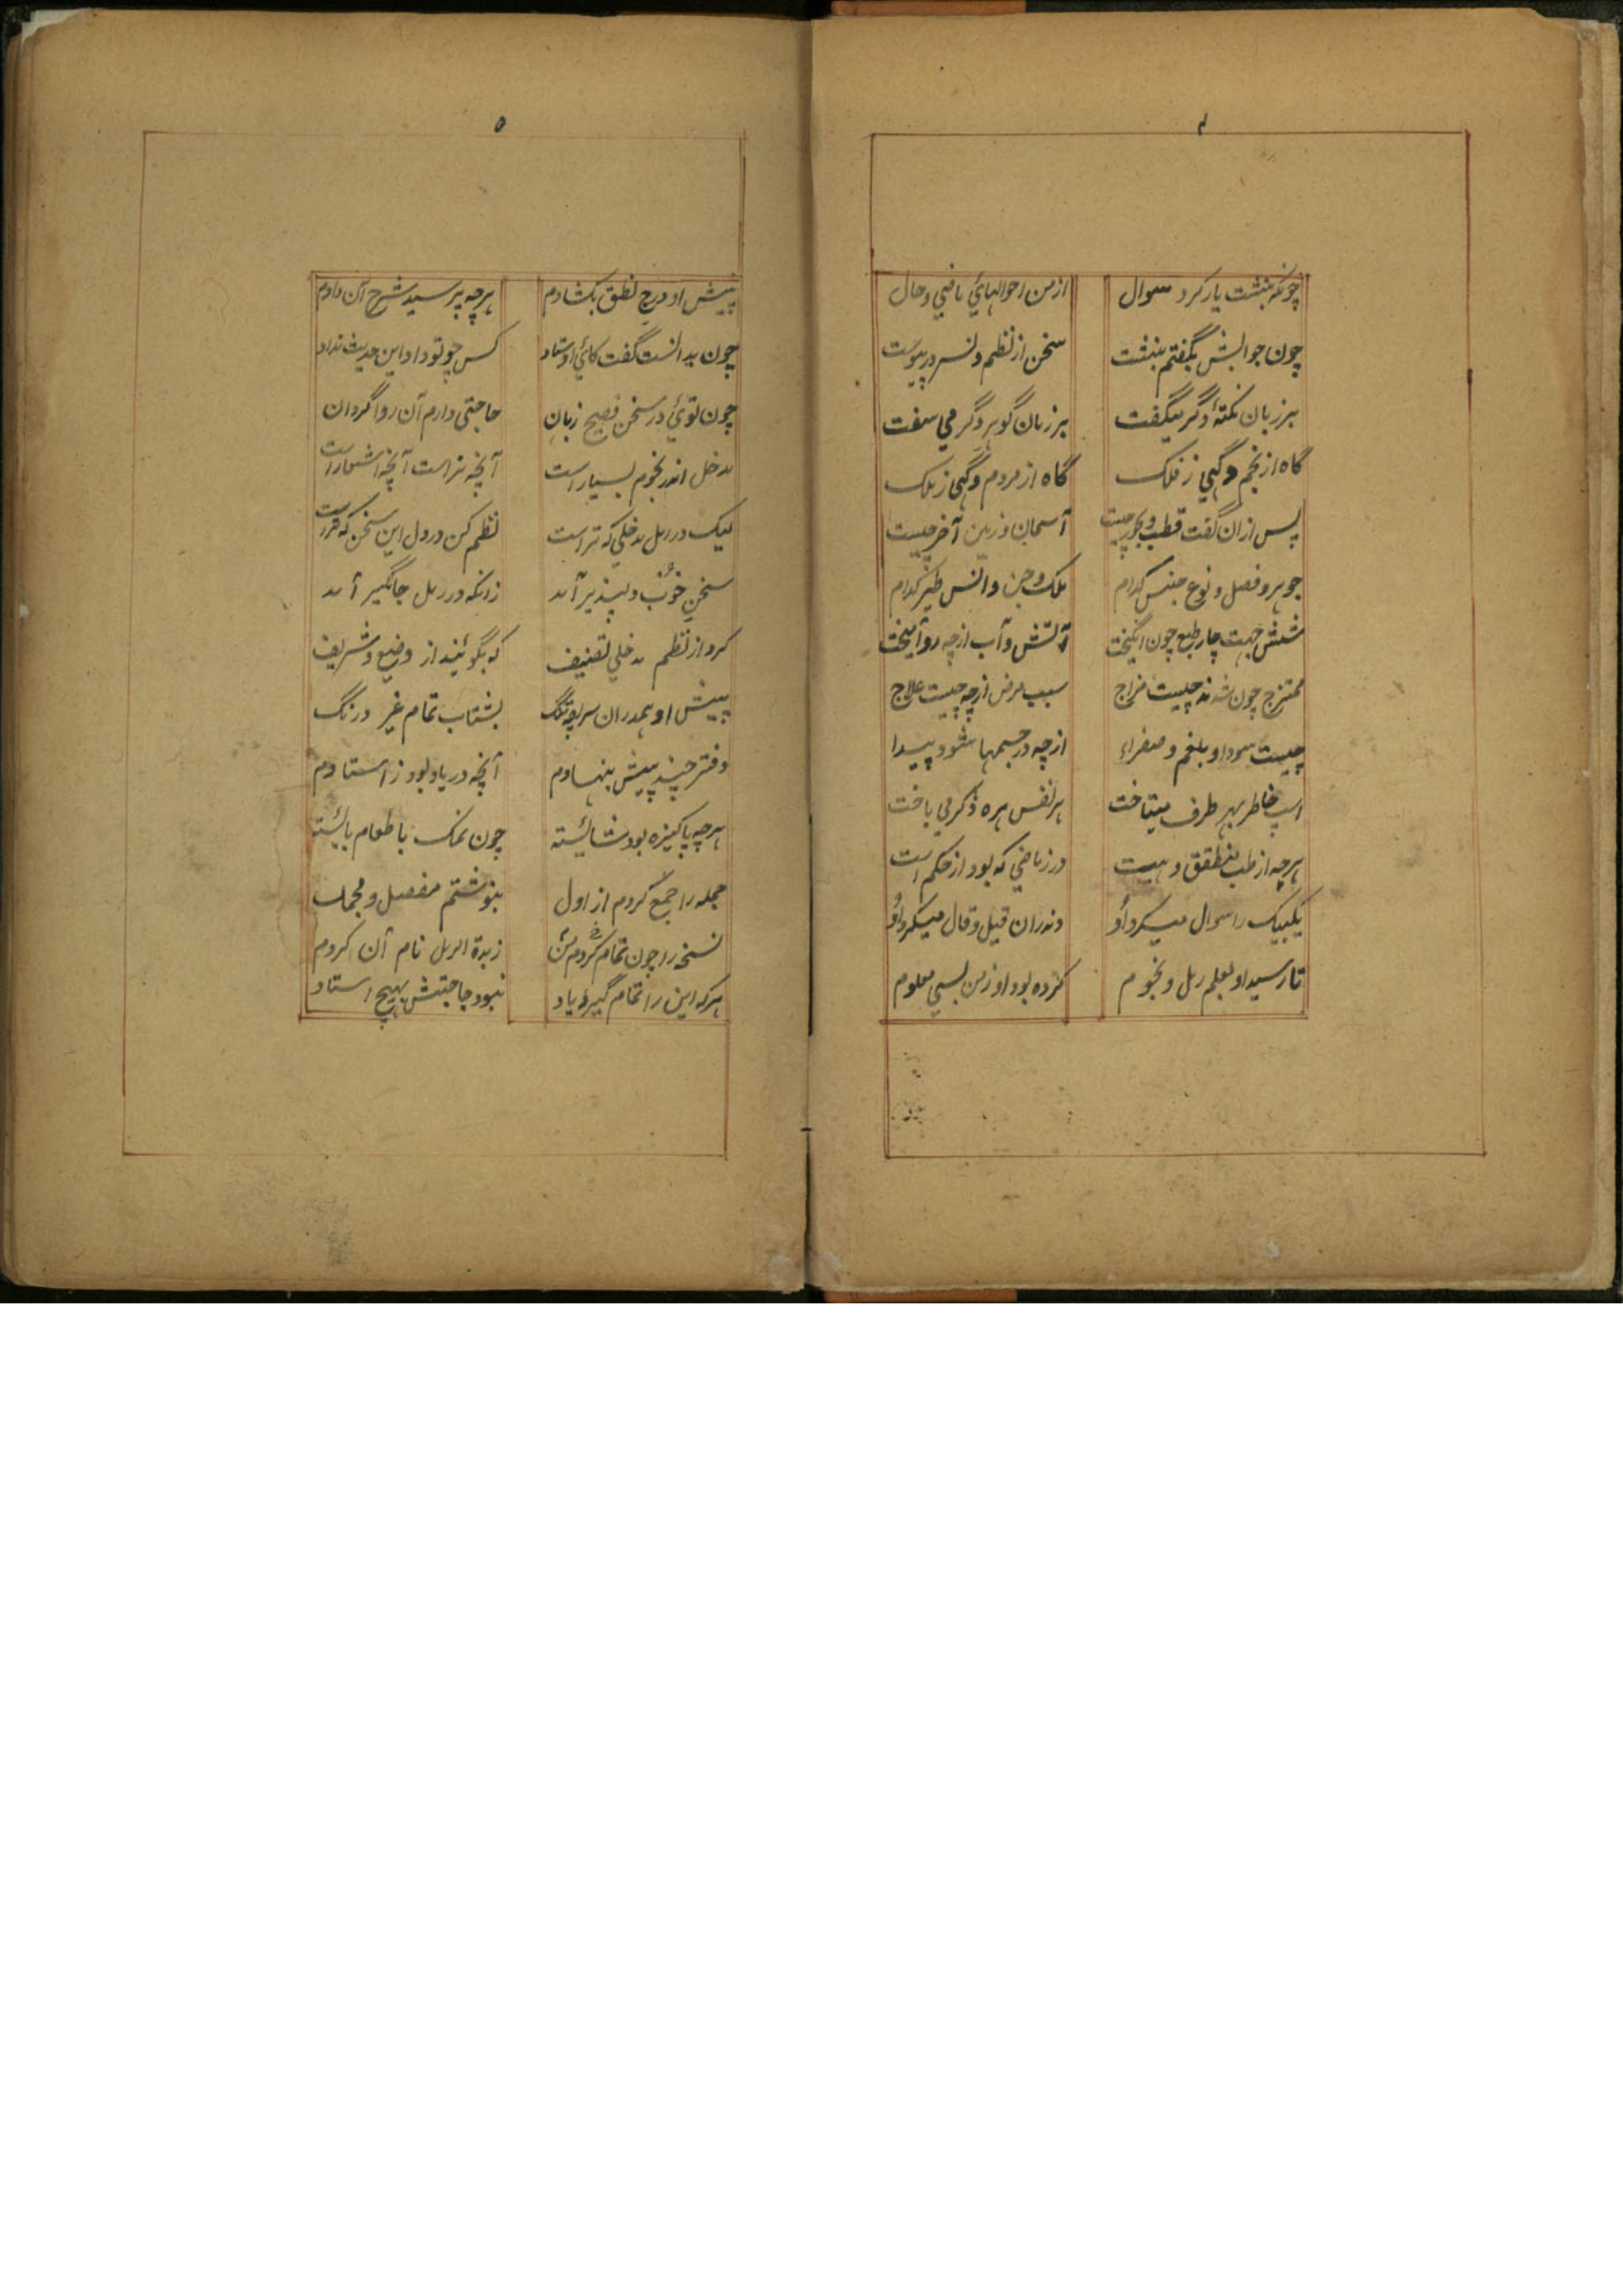 ۴
چونکه بنشست یار کرد سوال
از من احوالهائي ماضي و حال
چون جوابش بگفتم بنشست
سخن از نظم و نسر در پیوست
بر زبان نکتهٔ دگر میگفت
بر زبان گوهر دگر مي سفت
گاه از نجم و گهي ز فلک
گاه از مردم و گهي ز ملک
پس ازان گفت قطب و محور چیست
آسمان و زمین آخر چیست
جوهر و فصل و نوع جنس کدام
ملک و جن و انس طیر کدام
شش جهت چار طبع چون انگیخت
آتش و آب از چه رو آمیخت
ممتزج چون شدند چیست مزاج
سبب مرض از چه چیست علاج
چیست سودا و بلغم و صفراء
از چه در جسمها شود پیدا
اسپ خاطر بهر طرف میتاخت
هر نفس مهره ذکر مي باخت
هرچه از طب منطق و هییت
در ریاضي که بود از حکم است
یکبیک را سوال میکرد اُو
وندران قیل و قال میکرد اُو
تا رسید او بعلم رمل و نجوم
کرده بود او ز من بسي معلوم
۵
پیش او درج نطق بکشادم
هرچه پرسید شرح آن دادم
چون بدانست گفت کائي اوستاد
کس چو تو داد این حدیث نداد
چون توئي در سخن فصیح زبان
حاجتي دارم آن روا گردان
مدخل اندر نجوم بسیار است
آنچه نثر است آنچه اشعار است
لیک در رمل مدخلي که تراست
نظم کن در رمل این سخن که تراست
سخنِ خوُب دلپذیر آمد
زانکه در رمل جانگیر آمد
کرد از نظم مدخلي تصنیف
که بگوئیند از وضیع و شریف
پیش او همدران سریچه تنگ
بشتاب تمام غیر درنگ
دفتر چند پیش بنهادم
آنچه در یاد بود ز استادم
هرچه پاکیزه بود شائیسته
چون نمک با طعام بائیسته
جمله را جمع کردم از اول
بنوشتم مفصل و مجمل
نسخه را چون تمام کردم من
زبدة الرمل نام آن کردم
هرکه این را تمام گیرد یاد
نبود حاجتش بهیچ استاد